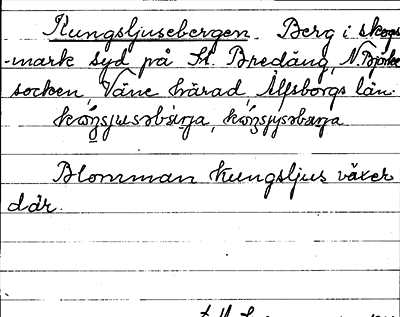 Kungsljusebergen. Berg i skogs
-mark syd på St. Bredäng, N. Björke
socken Väne härad, Älfsborgs län
Blomman kungsljus växer
där.